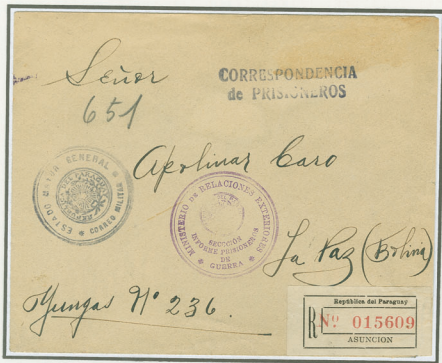 Señor
CORRESPONDENCIA
de PRISIONEROS
651
Apolinar Caro
ESTADO MAYOR GENERAL
CORREO MILITAR
MINISTERIO DE RELACIONES EXTERIORES
SECCION
INFORME PRISIONEROS
DE
GUERRA
La Paz (Bolivia)
Yungas Nº 236.
República del Paraguay
R Nº 015609
ASUNCION